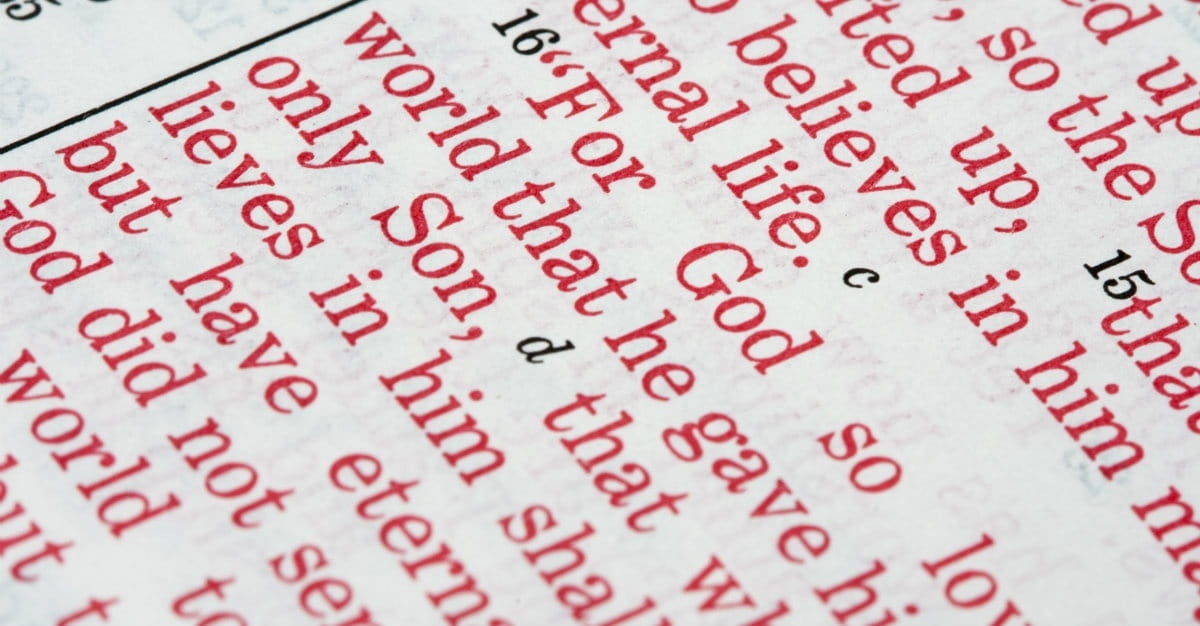 ed up
, so the S
fted up, 15tha
o believes in him ma
ernal life. c
16“For God so lov
world that he gave hi
only Son, d that wh
lieves in him shal
but have eterna
God did not sen
world to
ut t